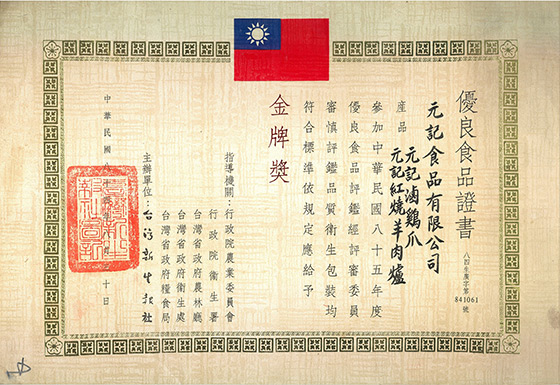 優良食品證書
八四生產字第
841061
號
元記食品有限公司
產品
元記滷鷄爪
元記紅燒羊肉爐
參加中華民國八十五年度
優良食品評鑑經評審委員
審慎評鑑品質衛生包裝均
符合標準依規定應給予
金牌獎
指導機關：行政院農業委員會
行政院衛生署
台灣省政府農林廳
台灣省政府衛生處
台灣省政府糧食局
主辦單位：台灣新生報社
中華民國八十
十日